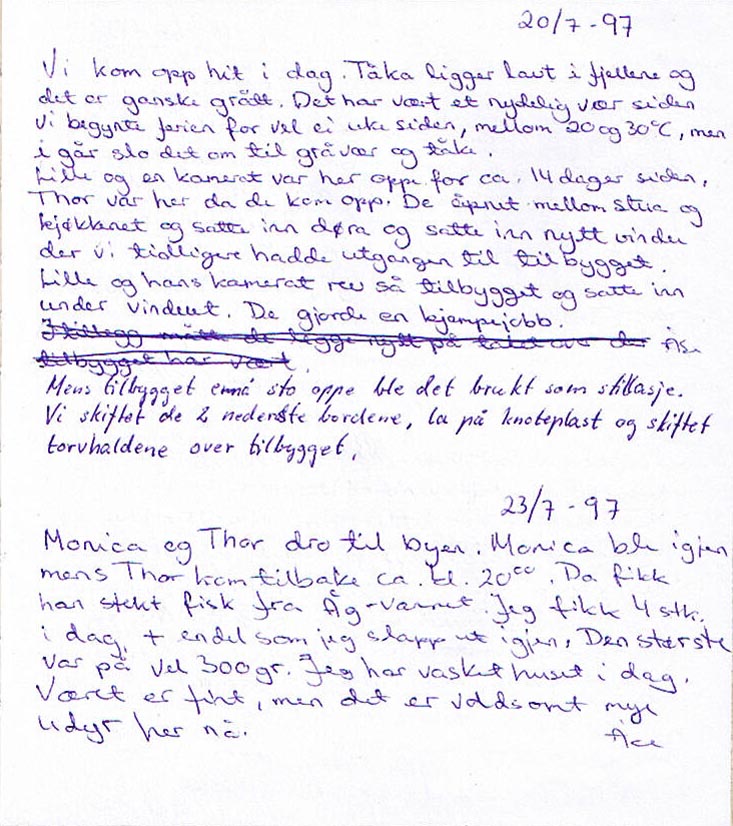 20/7-97
Vi kom opp hit i dag. Tåka ligger lavt i fjellene og
det er ganske grått. Det har vært et nydelig vær siden
vi begynte ferien for vel ei uke siden, mellom 20 og 30°C, men
i går slo det om til gråvær og tåke.
Lille og en kamerat var her oppe for ca. 14 dager siden,
Thor var her da de kom opp. De åpnet mellom stua og
kjøkkenet og satte inn døra og satte inn nytt vindu
der vi tidligere hadde utgangen til tilbygget.
Lille og hans kamerat rev så tilbygget og satte inn
under vinduet. De gjorde en kjempejobb.
I tillegg måtte de legge nytt på taket over der
tilbygget har vært.
Mens tilbygget ennå sto oppe ble det brukt som stillasje.
Vi skiftet de 2 nederste bordene, la på knoteplast og skiftet
torvhaldene over tilbygget.
23/7-97
Monica og Thor dro til byen. Monica ble igjen
mens Thor kom tilbake ca. kl. 20⁰⁰. Da fikk
han stekt fisk fra Åg-vannet. Jeg fikk 4 stk.
i dag, + endel som jeg slapp ut igjen. Den største
var på vel 300gr. Jeg har vasket huset i dag.
Været er fint, men det er voldsomt mye
udyr her nå.